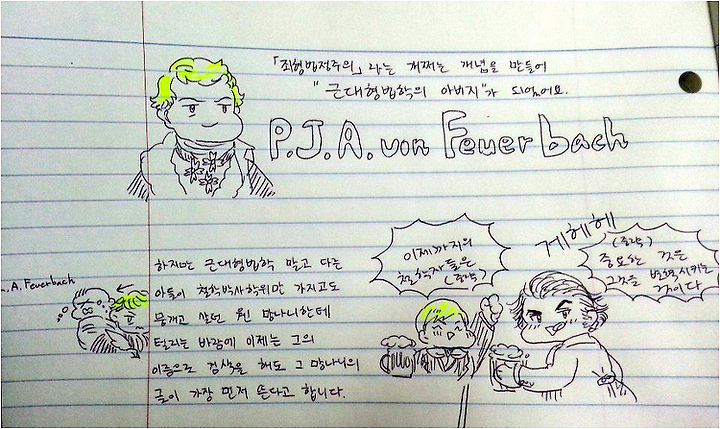 「죄형법정주의」라는 쩌는 개념을 만들어
"근대형법학의 아버지"가 되었어요.
P.J.A. von Feuerbach
L. A. Feuerbach
하지만 근대형법학 말고 다른
아들이 철학박사학위만 가지고도
뭉개고 살던 웬 망나니한테
털리는 바람에 이제는 그의
이름으로 검색을 해도 그 망나니의
글이 가장 먼저 뜬다고 합니다.
이제까지의
철학자들은
(중략)
게헤헤
(중략)
중요한 것은
그것을 변혁시키는
것이다